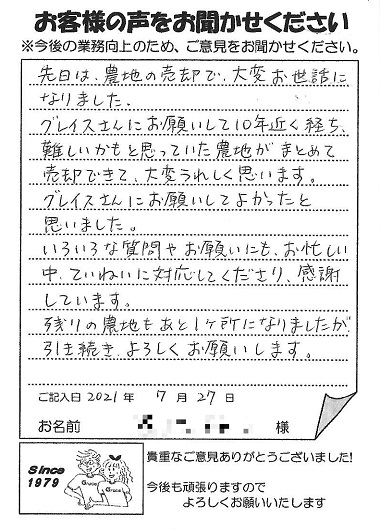 お客様の声をお聞かせください
※今後の業務向上のため、ご意見をお聞かせください。
先日は、農地の売却で、大変お世話に
なりました。
グレイスさんにお願いして10年近く経ち、
難しいかもと思っていた農地がまとめて
売却できて、大変うれしく思います。
グレイスさんにお願いしてよかったと
思いました。
いろいろな質問やお願いにも、お忙しい
中、ていねいに対応してくださり、感謝
しています。
残りの農地もあと1ヶ所になりましたが
引き続き、よろしくお願いします。
ご記入日 2021 年 7 月 27 日
お名前 様
Since
1979
Grace
Grace
貴重なご意見ありがとうございました!
今後も頑張りますので
よろしくお願いいたします